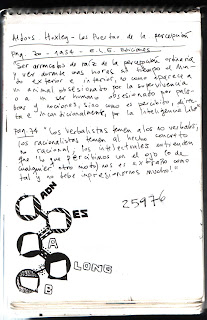 Aldous Huxley - Las Puertas de la percepción
Pag. 70 - 1a36 - E.L.E. Ediciones
"Ser arrancados de raíz de la percepción ordinaria
y ver durante unas horas el tiempo el mun-
do exterior e interior, no como aparece a
un animal obsesionado por la supervivencia
o a un ser humano obsesionado por pala-
bras y nociones, sino como es percibido, direc-
ta e incondicionalmente, por la Inteligencia Libre"
pag 74 "Los verbalistas temen a los no verbales,
los racionalistas temen al hecho concreto
no racional; los intelectuales entienden
que "lo que percibimos con el ojo (o de
cualquier otro modo) nos es extraño como
tal y no debe impresionarnos mucho"."
25976
ADN
ES
A
LONG
B